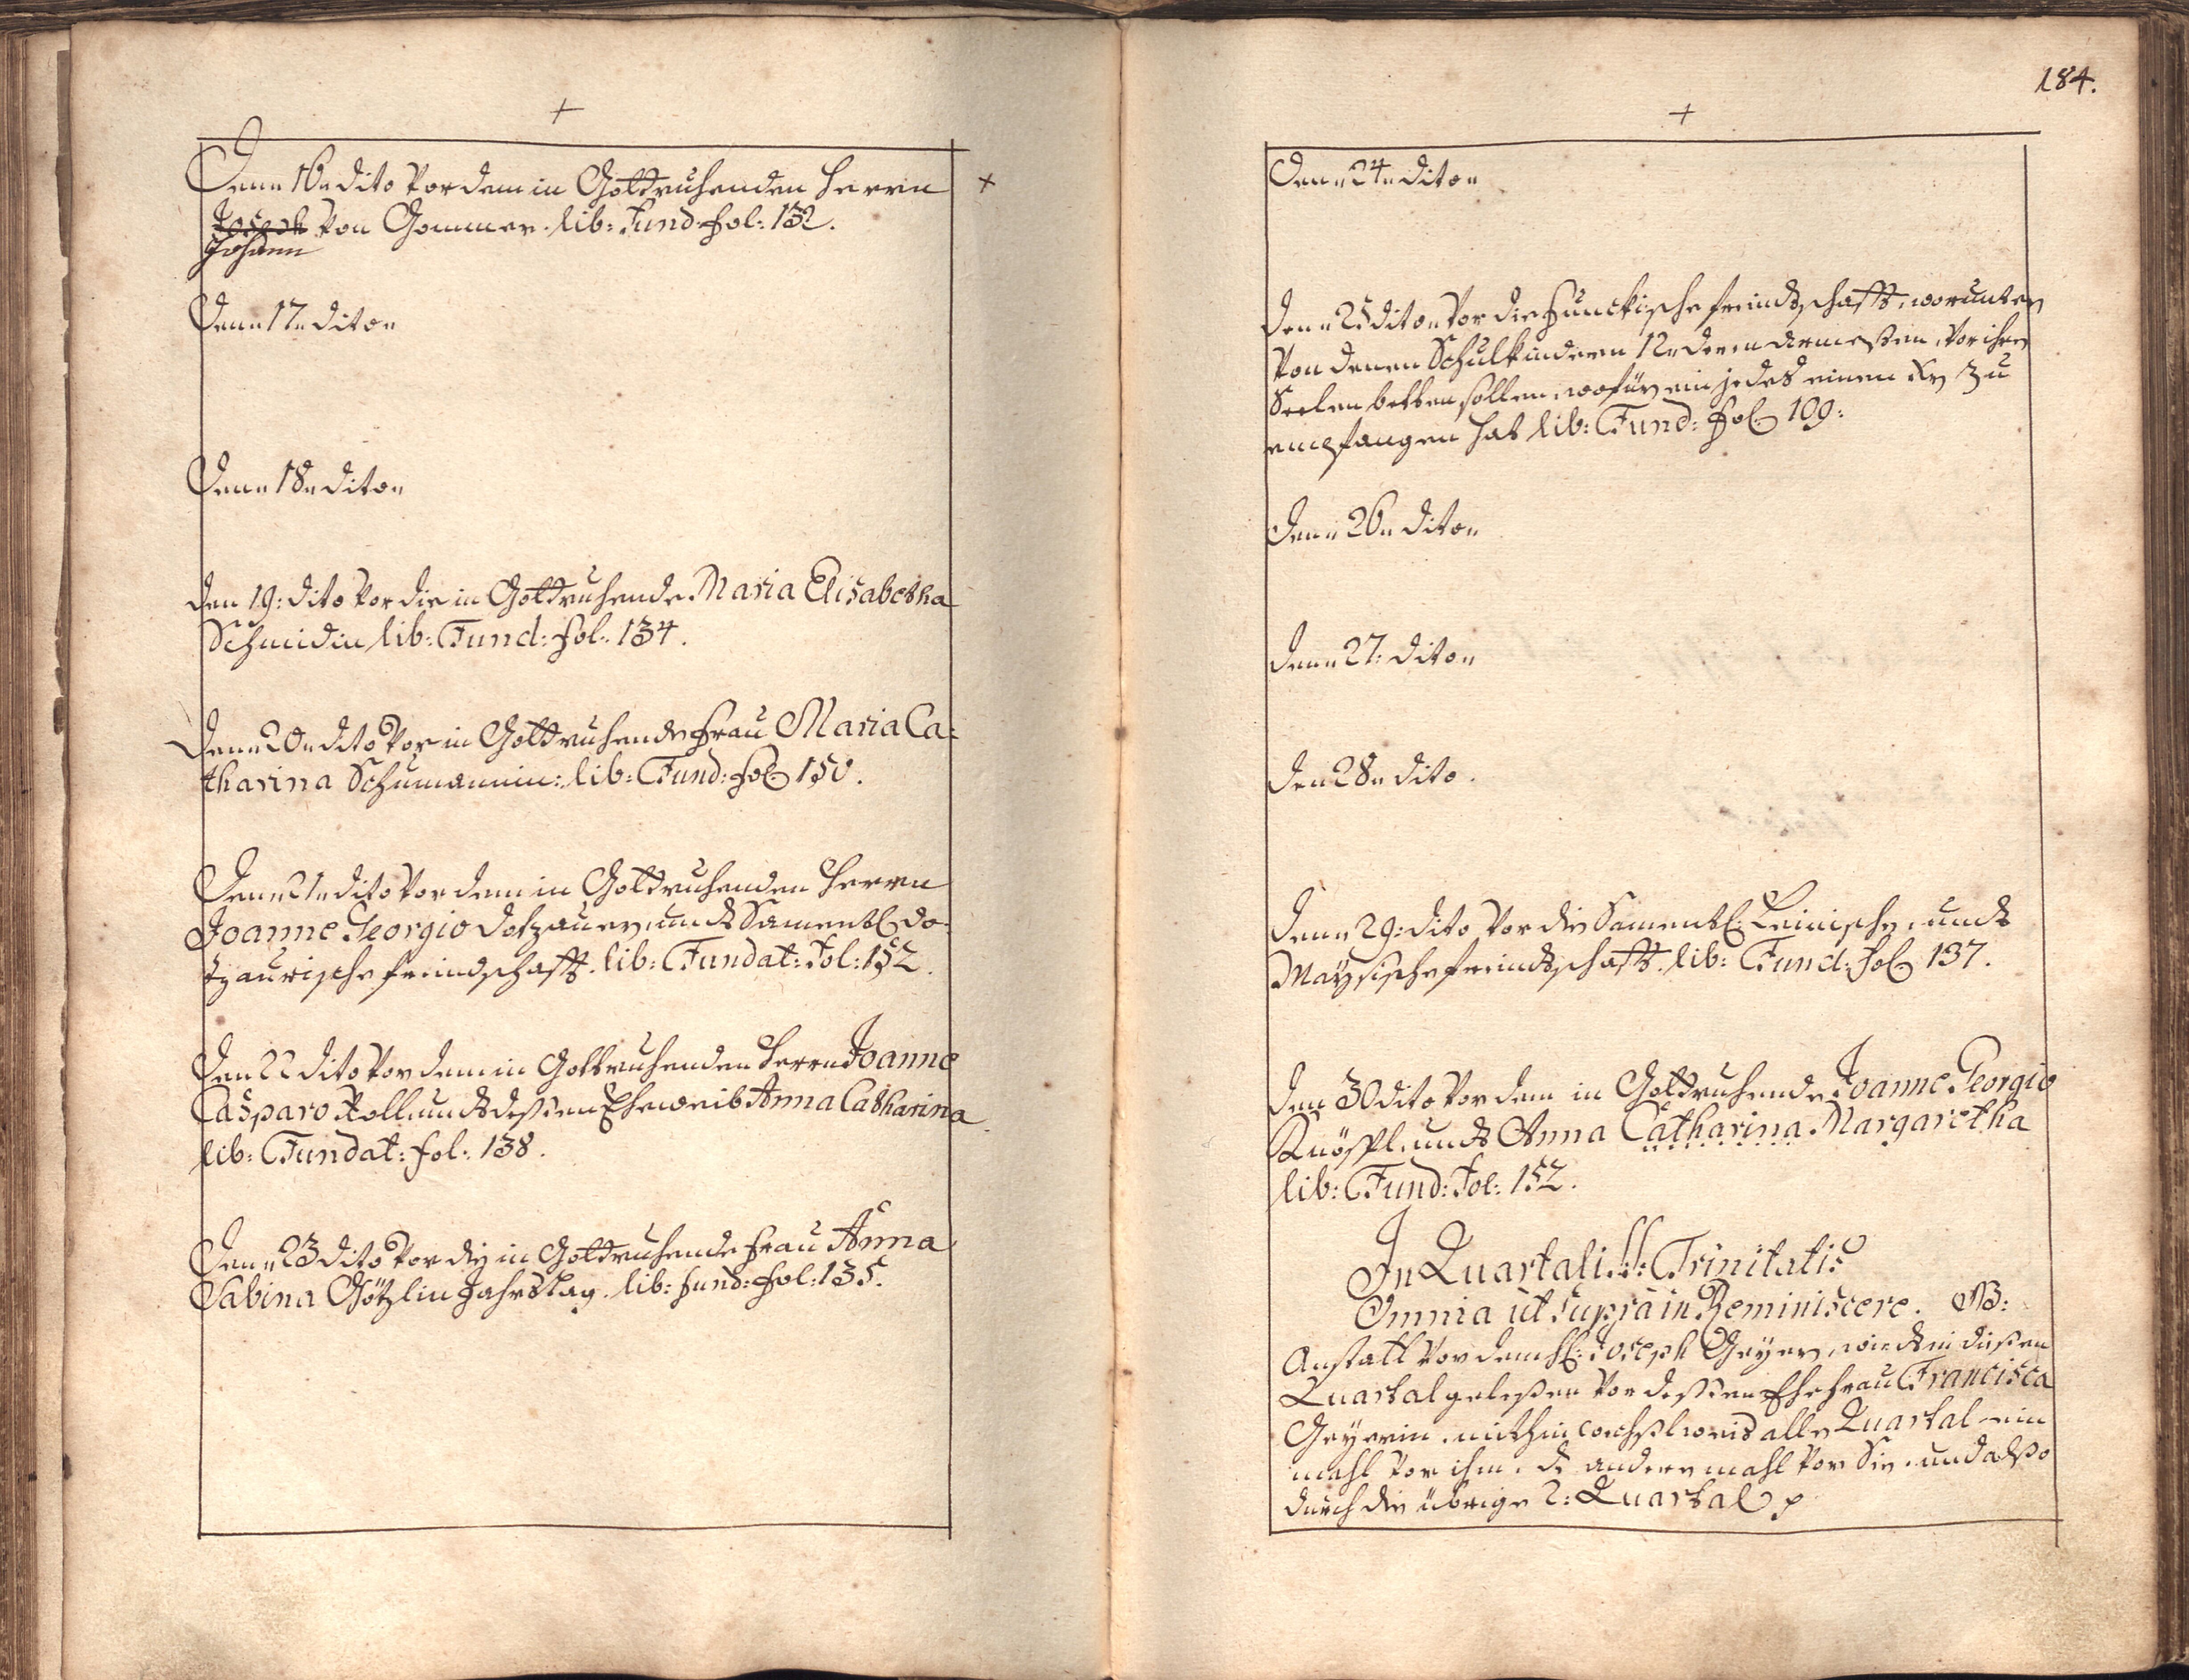 +
Denn 16n dito Vor dem in Gott ruhenden Herrn +
Joseph Von Gommer. lib: Fund: fol: 132.
Johann
Denn 17n diton
Denn 18n diton
Den 19: dito Vor die in Gott ruhende Maria Elisabetha
Schmidin lib: Fund: fol: 134.
Denn 20n dito Vor in Gott ruhende Frau Maria Ca=
tharina Schumannin: lib: Fund: fol: 150.
Denn 21n dito Vor dem in Gott ruhenden Herrn
Joanne Georgio Dotzauer, undt Samentl: Do=
tzaurische freündschafft. lib: Fundat: Fol: 152.
Den 22 dito Vor dem in Gott ruhenden Herrn Joanne
Casparo Roll undt dessen Eheweib Anna Catharina
lib: Fundat: fol: 138.
Denn 23 dito Vor die in Gott ruhende Frau Anna
Sabina Götzlin Jahrstag. lib: fund: fol: 135.
184.
+
Denn 24n diton
Denn 25 diton Vor die Funckische freindtschafft, worunter
Von denen Schulkindern 12n deren ärmesten, Vor ihre
Seelen betten sollen, wofür ein jedes einen Kr zu
empfangen hat lib: Fund: fol: 109:
Denn 26n diton
Denn 27: diton
Den 28n dito.
Denn 29: dito Vor die Samentl: Leinische, undt
Maÿsische freindtschafft. lib: Fund: fol: 137.
Den 30 dito Vor dem in Gott ruhende Joanne Georgio
Knöspl, undt Anna Catharina Margaretha
lib: Fund: Fol: 152.
In Quartali SS: Trinitatis
Omnia ut supra in Reminiscere. NB:
Anstatt Vor dem H: Joseph Geyer, wirdt in diesen
Quartal gelesen Vor dessen Ehefrau Francisca
Geyerin. mithin wechslweis alle Quartal ein
mahl Vor ihm. dz andere mahl Vor Sie. und also
durch die übrige 2: Quartal p